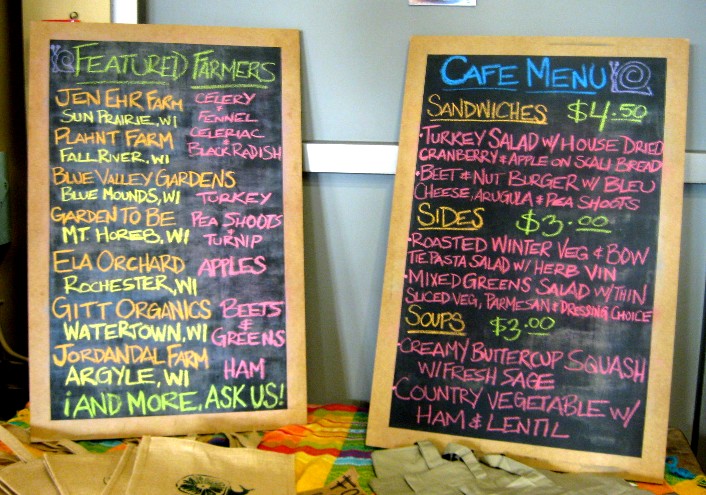 FEATURED FARMERS
JEN EHR FARM
SUN PRAIRIE, WI
CELERY
&
FENNEL
PLAHNT FARM
FALL RIVER, WI
CELERIAC
&
BLACK RADISH
BLUE VALLEY GARDENS
BLUE MOUNDS, WI
TURKEY
GARDEN TO BE
MT HOREB, WI
PEA SHOOTS
&
TURNIP
ELA ORCHARD
ROCHESTER, WI
APPLES
GITT ORGANICS
WATERTOWN, WI
BEETS
&
GREENS
JORDANDAL FARM
ARGYLE, WI
HAM
¡AND MORE, ASK US!
CAFE MENU
SANDWICHES $4.50
•TURKEY SALAD W/ HOUSE DRIED
CRANBERRY & APPLE ON SKALI BREAD
•BEET & NUT BURGER W/ BLEU
CHEESE, ARUGULA & PEA SHOOTS
SIDES $3.00
•ROASTED WINTER VEG & BOW
TIE PASTA SALAD W/ HERB VIN
•MIXED GREENS SALAD W/ THIN
SLICED VEG, PARMESAN & DRESSING CHOICE
SOUPS $3.00
•CREAMY BUTTERCUP SQUASH
W/ FRESH SAGE
•COUNTRY VEGETABLE W/
HAM & LENTIL